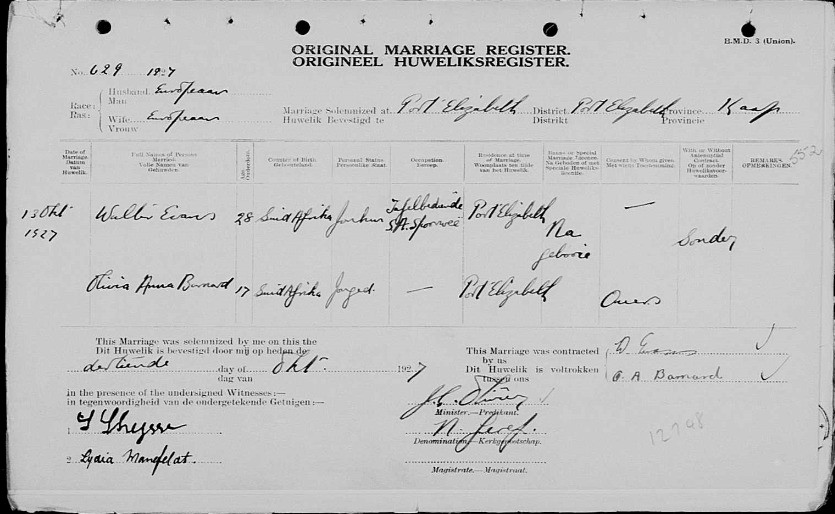 B.M.D. 3 (Union).
ORIGINAL MARRIAGE REGISTER.
ORIGINEEL HUWELIKSREGISTER.
No. 629 1927
Race: Ras:
Husband Man European
Wife Vrouw European
Marriage Solemnized at Huwelik Bevestigd te Port Elizabeth District Distrikt Port Elizabeth Province Provincie Kaap
352
Date of Marriage. Datum van Huwelik.
Full Names of Persons Married. Volle Namen van Gehuwden.
Age.
Country of Birth
Personal Status. Persoonlike Staat.
Occupation. Beroep.
Residence at time of Marriage. Woonplaats ten tijde van het Huwelik.
Banns or Special Marriage Licence. Na Geboden of met Speciale Huweliks-licentie.
Consent by Whom given
With or Without Antenuptial Contract. Met of zonder Huweliksvoorwaarden.
REMARKS. OPMERKINGEN.
13 Okt 1927 Walter Evans 28 Suid Afrika Jonkman Tafelbediende S.A. Spoorweë Port Elizabeth Na gebooie — Sonder
Olivia Anna Barnard 17 Suid Afrika Jonged. — Port Elizabeth Ouers
This Marriage was solemnized by me on this the
Dit Huwelik is bevestigd door mij op heden de
dertiende day of dag van Okt. 1927
in the presence of the undersigned Witnesses:—
in tegenwoordigheid van de ondergetekende Getuigen:—
1.
2. Lydia Manefeldt
This Marriage was contracted by us
Dit Huwelik is voltrokken tussen ons
W. Evans
O. A. Barnard
Minister.—Predikant.
N. Geref.
Denomination.—Kerkgenootschap.
Magistrate.—Magistraat.